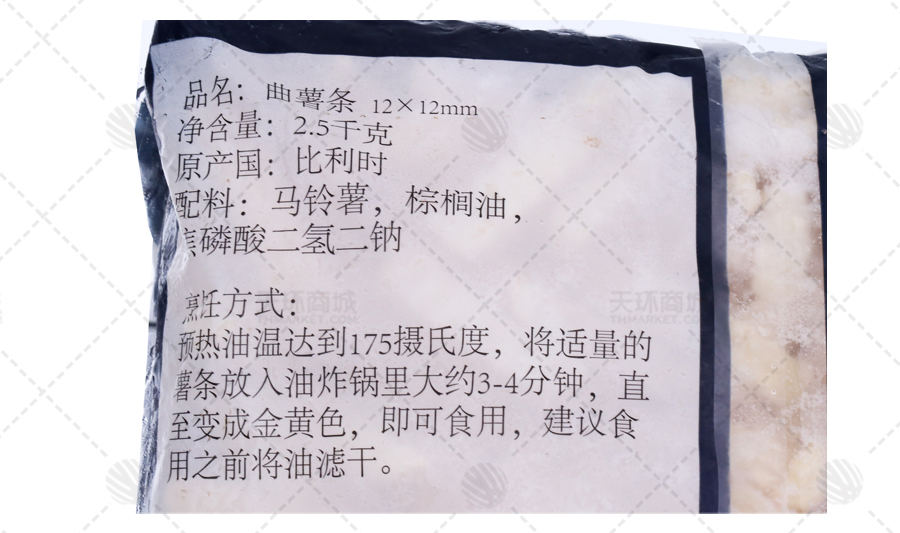 品名：曲薯条 12×12mm
净含量：2.5千克
原产国：比利时
配料：马铃薯，棕榈油，
焦磷酸二氢二钠
烹饪方式：
预热油温达到175摄氏度，将适量的
薯条放入油炸锅里大约3-4分钟，直
至变成金黄色，即可食用，建议食
用之前将油滤干。
天环商城
THMARKET.COM
天环商城
THMARKET.COM